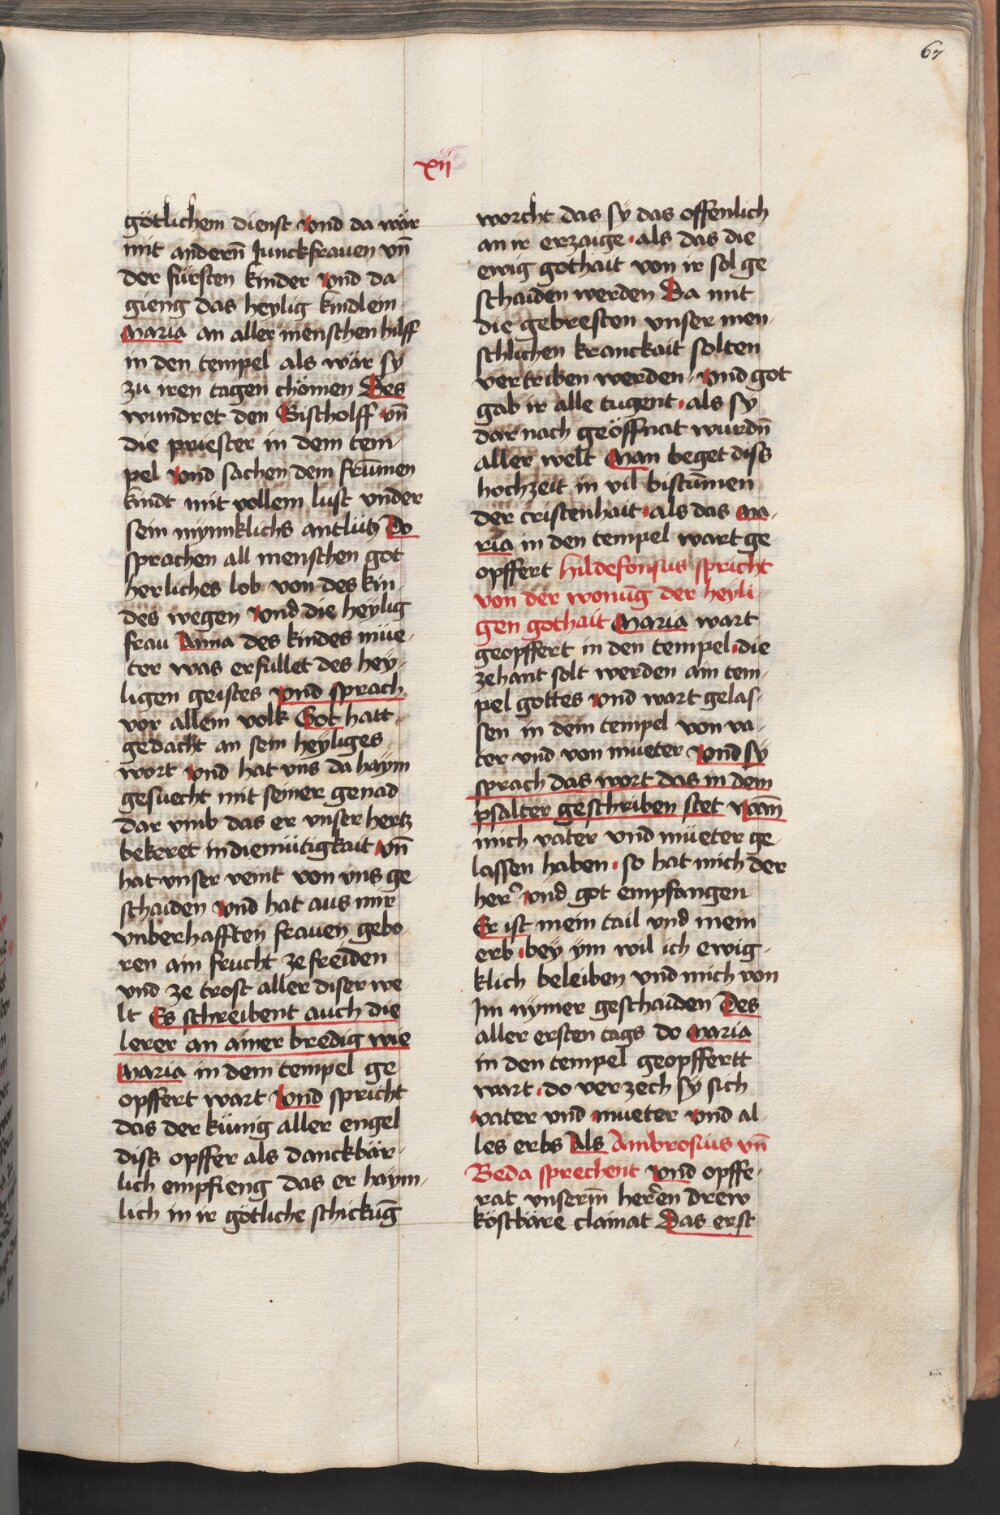 67
xij
götlichem dienst Vnd da wär
mit anderñ Junckfrauen vñ
der fürsten kinder Vnd da
gieng das heylig kindlein
Maria an aller menschen hilff
in den tempel als wär sy
zu iren tagen chömen Des
wundret den Bischolff vñ
die priester in dem tem-
pel Vnd sachen dem frūmen
kindt mit vollem lust vnder
sein mynnklichs antlütz Do
sprachen all menschen got
herliches lob von des kin
des wegen Vnd die heylig
frau Anna des kindes mue-
ter was erfullet des hey-
ligen geistes Vnd sprach
vor allem volk Got hatt
gedacht an sein heyliges
wort Vnd hat vns da haym
gesuecht mit seiner genad
dar vmb das er vnser hertz
bekeret in diemütigkait Vñ
hat vnser veint von vns ge
schaiden Vnd hat aus mir
vnberhafften frauen gebo-
ren ain frucht ze freiden
vnd ze trost aller diser we-
lt Es schreibent auch die
lerer an ainer bredig wie
Maria in dem tempel ge
opffert wart Vnd spricht
das der künig aller engel
diss opffer als danckbär-
lich empfieng das er haym-
lich in ir götliche schickūg
worcht das sy das offenlich
an ir erzaige als das die
ewig gothait von ir sol ge
schaiden werden Da mit
die gebresten vnser men-
schlichen kranckait solten
vertriben werden Vnd got
gab ir alle tugent als sy
dar nach geöffnat wurdñ
aller welt Man beget diss
hochzeit in vil bistūmen
der cristenhait als das Ma-
ria in den tempel wart ge
opffert hildefonsus spricht
von der wonūg der heyli-
gen gothait Maria wart
geopffert in den tempel die
zehant solt werden ain tem-
pel gottes Vnd wart gelas-
sen in dem tempel von va-
ter vnd von mueter Vnd sy
sprach das wort das in dem
psalter geschriben stet Wañ
mich vater vnd müeter ge
lassen haben so hat mich der
her Vnd got empfangen
Er ist mein tail vnd mein
erb bey ym wil ich ewig-
klich beleiben vnd mich von
Im nymer geschaiden Des
aller ersten tags do Maria
in den tempel geopffertt
wart do verzech sy sich
vater vnd mueter Vnd al-
les erbs Als Ambrosius vñ
Beda sprechent Vnd opffe-
rat vnserm heren drew
köstbäre clainat Das erst